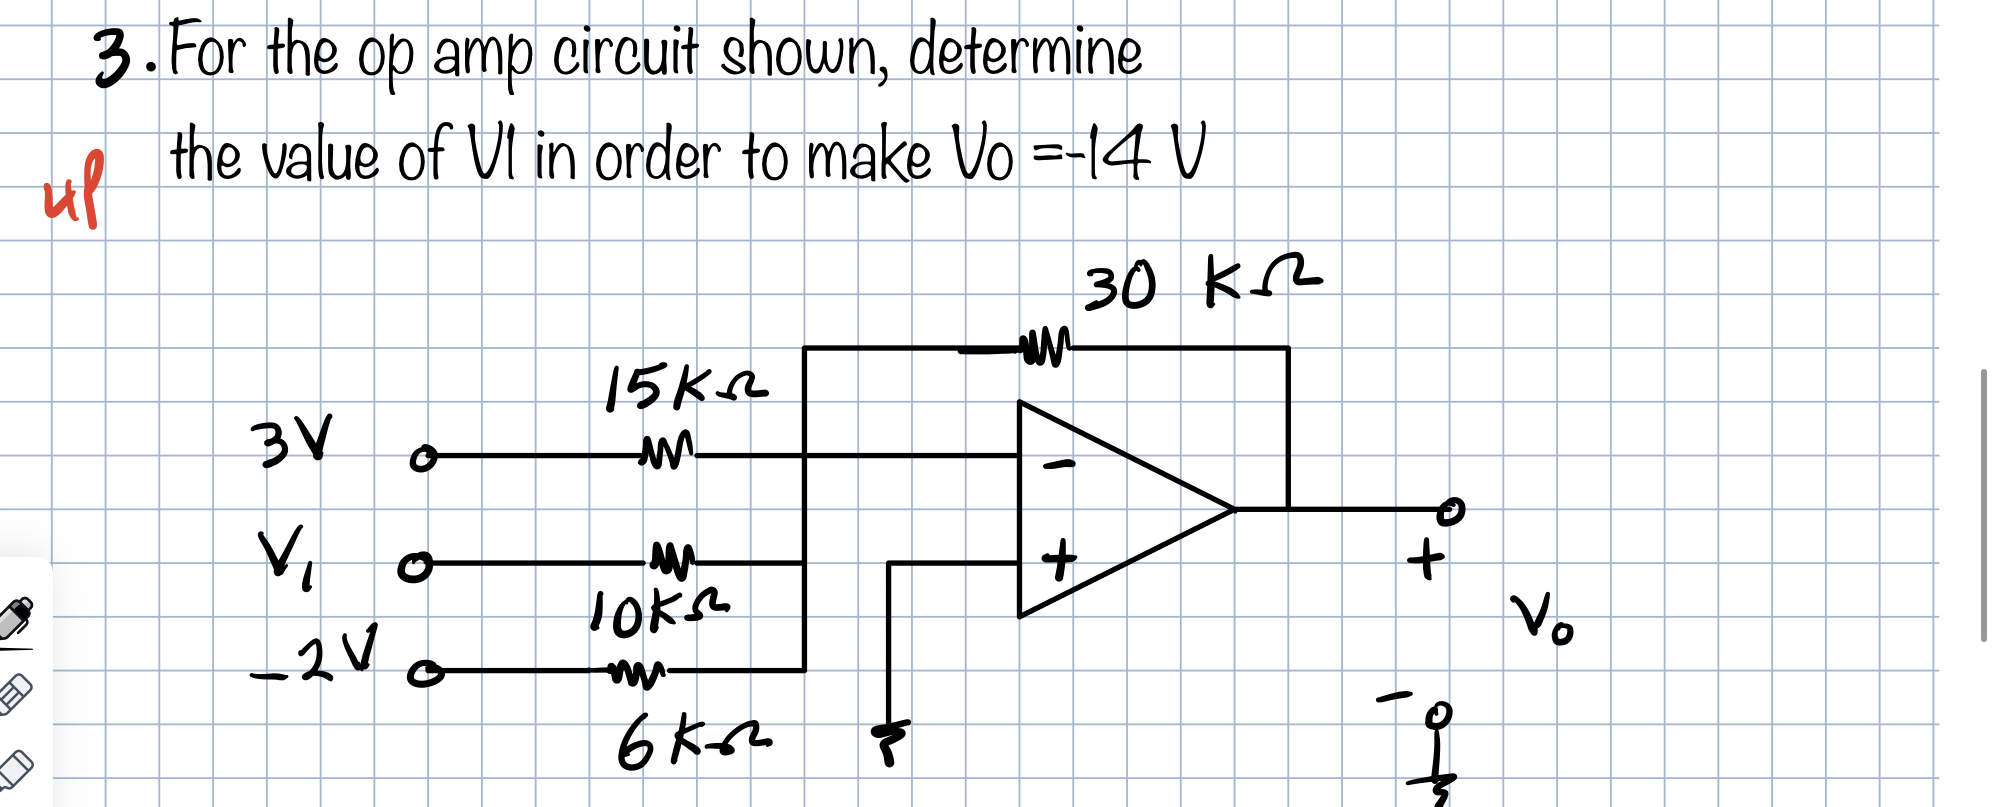 3. For the op amp circuit shown, determine
the value of V1 in order to make Vo =-14 V
4P
30 KΩ
15KΩ
3V
-
V₁
+
10KΩ
+
-2V
Vo
6KΩ
-